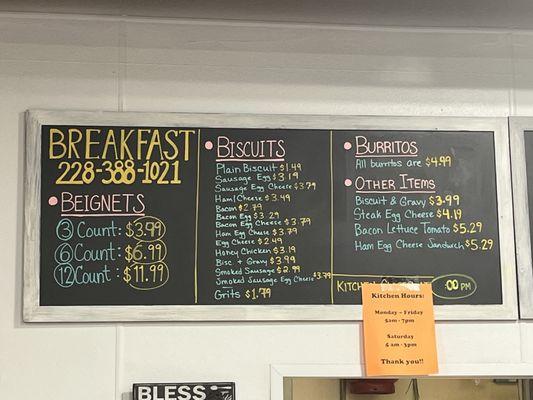 BREAKFAST
228-388-1021
BEIGNETS
3 Count: $3.99
6 Count: $6.99
12 Count: $11.99
BISCUITS
Plain Biscuit $1.49
Sausage Egg $3.19
Sausage Egg Cheese $3.79
Ham/Cheese $3.49
Bacon $2.79
Bacon Egg $3.29
Bacon Egg Cheese $3.79
Ham Egg Cheese $3.79
Egg Cheese $2.49
Honey Chicken $3.19
Bisc + Gravy $3.99
Smoked Sausage $2.99
Smoked Sausage Egg Cheese $3.79
Grits $1.79
BURRITOS
All burritos are $4.99
OTHER ITEMS
Biscuit & Gravy $3.99
Steak Egg Cheese $4.19
Bacon Lettuce Tomato $5.29
Ham Egg Cheese Sandwich $5.29
KITCHEN :00 PM
Kitchen Hours:
Monday - Friday
5am - 7pm
Saturday
5 am - 3pm
Thank you!!
BLESS